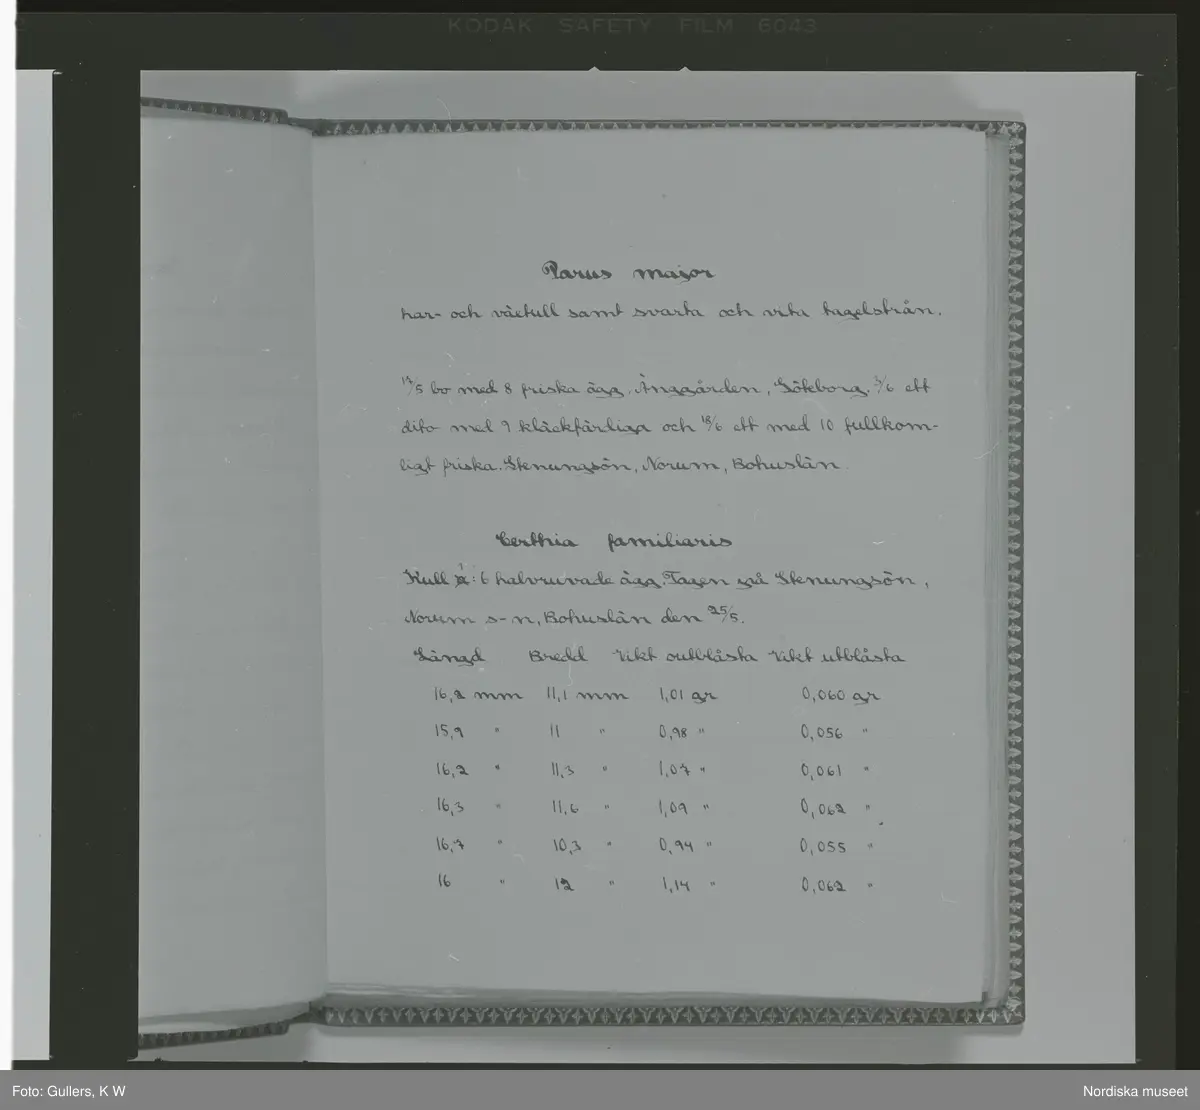 KODAK SAFETY FILM 6043
Parus major
har- och växtull samt svarta och vita tagelstrån.
17/5 bo med 8 friska ägg. Änggården, Göteborg. 3/6 ett
dito med 9 kläckfärdiga och 18/6 ett med 10 fullkom-
ligt friska. Stenungsön, Norum, Bohuslän.
Certhia familiaris
Kull 1: 6 halvruvade ägg. Tagen på Stenungsön,
Norum s-n, Bohuslän den 25/5.
Längd Bredd Vikt outblåsta Vikt utblåsta
16,2 mm 11,1 mm 1,01 gr 0,060 gr
15,9 " 11 " 0,98 " 0,056 "
16,2 " 11,3 " 1,07 " 0,061 "
16,3 " 11,6 " 1,09 " 0,062 "
16,7 " 10,3 " 0,94 " 0,055 "
16 " 12 " 1,14 " 0,062 "
Foto: Gullers, K W
Nordiska museet